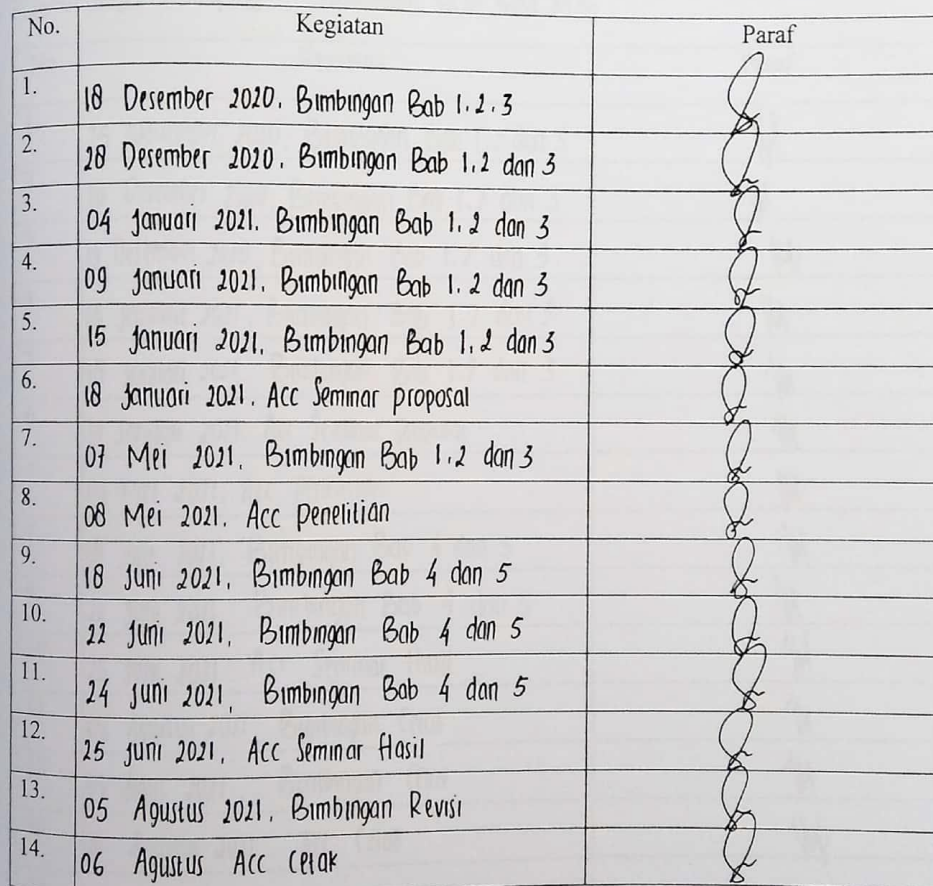 No. Kegiatan Paraf
1. 18 Desember 2020. Bimbingan Bab 1.2.3
2. 28 Desember 2020. Bimbingan Bab 1.2 dan 3
3. 04 Januari 2021. Bimbingan Bab 1.2 dan 3
4. 09 Januari 2021. Bimbingan Bab 1.2 dan 3
5. 15 Januari 2021. Bimbingan Bab 1.2 dan 3
6. 18 Januari 2021. Acc Seminar proposal
7. 07 Mei 2021. Bimbingan Bab 1.2 dan 3
8. 08 Mei 2021. Acc penelitian
9. 18 Juni 2021. Bimbingan Bab 4 dan 5
10. 22 Juni 2021, Bimbingan Bab 4 dan 5
11. 24 Juni 2021, Bimbingan Bab 4 dan 5
12. 25 Juni 2021, Acc Seminar Hasil
13. 05 Agustus 2021. Bimbingan Revisi
14. 06 Agustus Acc Cetak